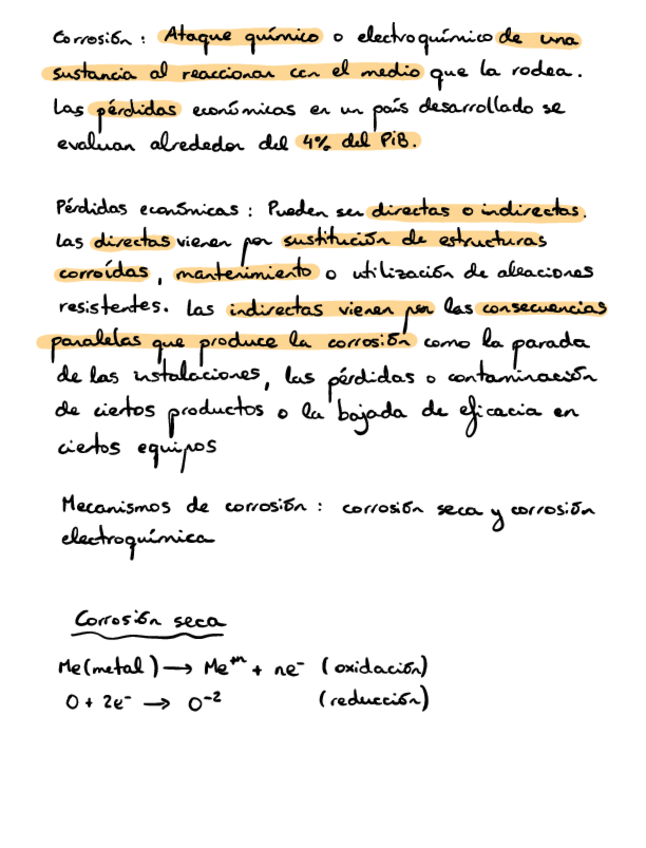 Corrosión : Ataque químico o electroquímico de una
sustancia al reaccionar con el medio que la rodea.
Las pérdidas económicas en un país desarrollado se
evaluan alrededor del 4% del PiB.
Pérdidas económicas : Pueden ser directas o indirectas.
Las directas vienen por sustitución de estructuras
corroídas, mantenimiento o utilización de aleaciones
resistentes. Las indirectas vienen por las consecuencias
paralelas que produce la corrosión como la parada
de las instalaciones, las pérdidas o contaminación
de ciertos productos o la bajada de eficacia en
ciertos equipos
Mecanismos de corrosión : corrosión seca y corrosión
electroquímica
Corrosión seca
Me(metal) → Me⁺ⁿ + ne⁻ (oxidación)
O + 2e⁻ → O⁻² (reducción)